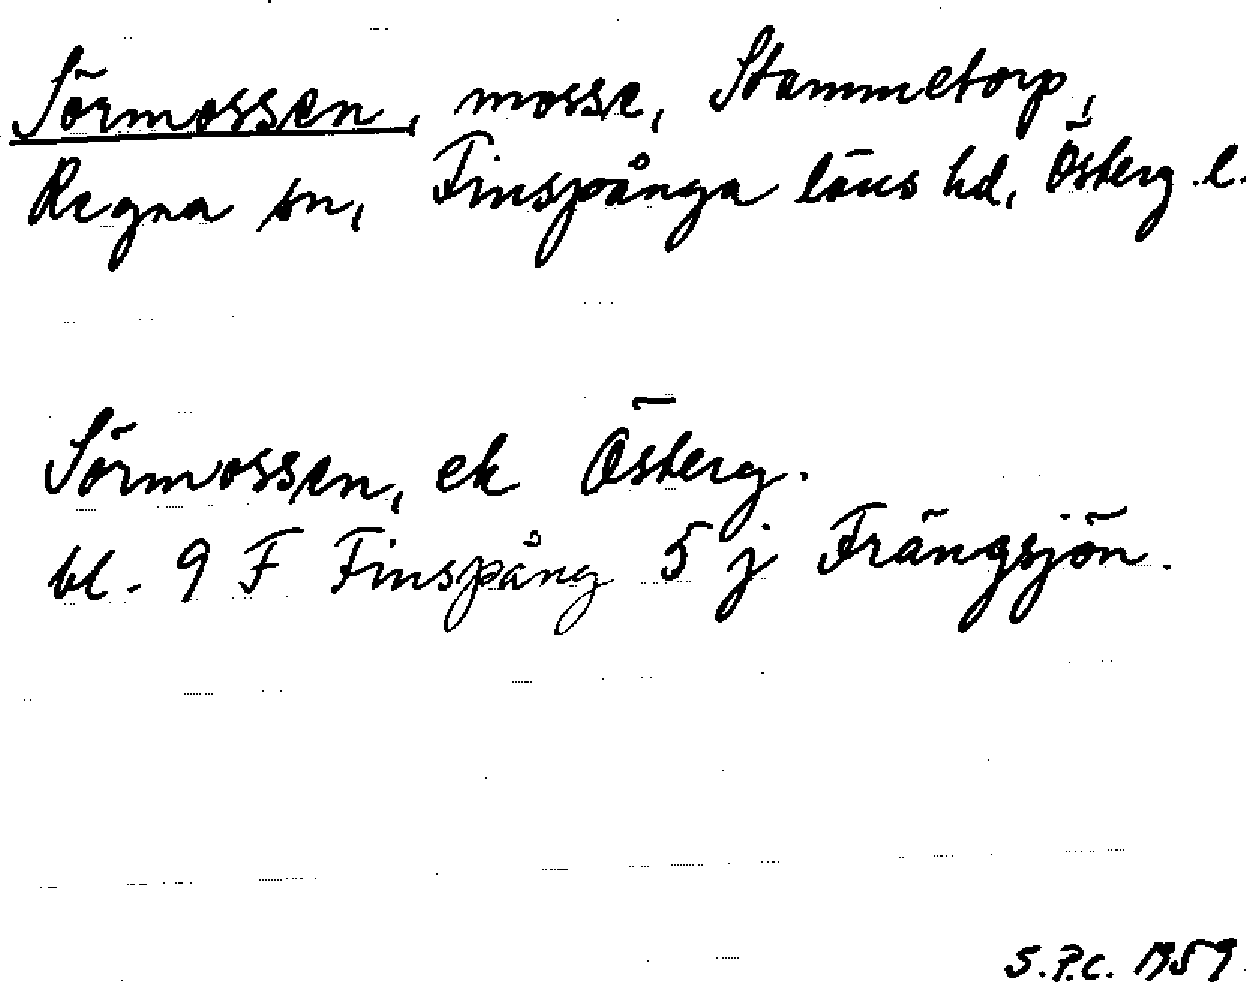 Sörmossen, mosse, Stammetorp,
Regna sn, Finspånga läns hd, Österg. l.
Sörmossen, ek Österg.
bl. 9 F Finspång 5 j Frängsjön.
S.P.C. 1959